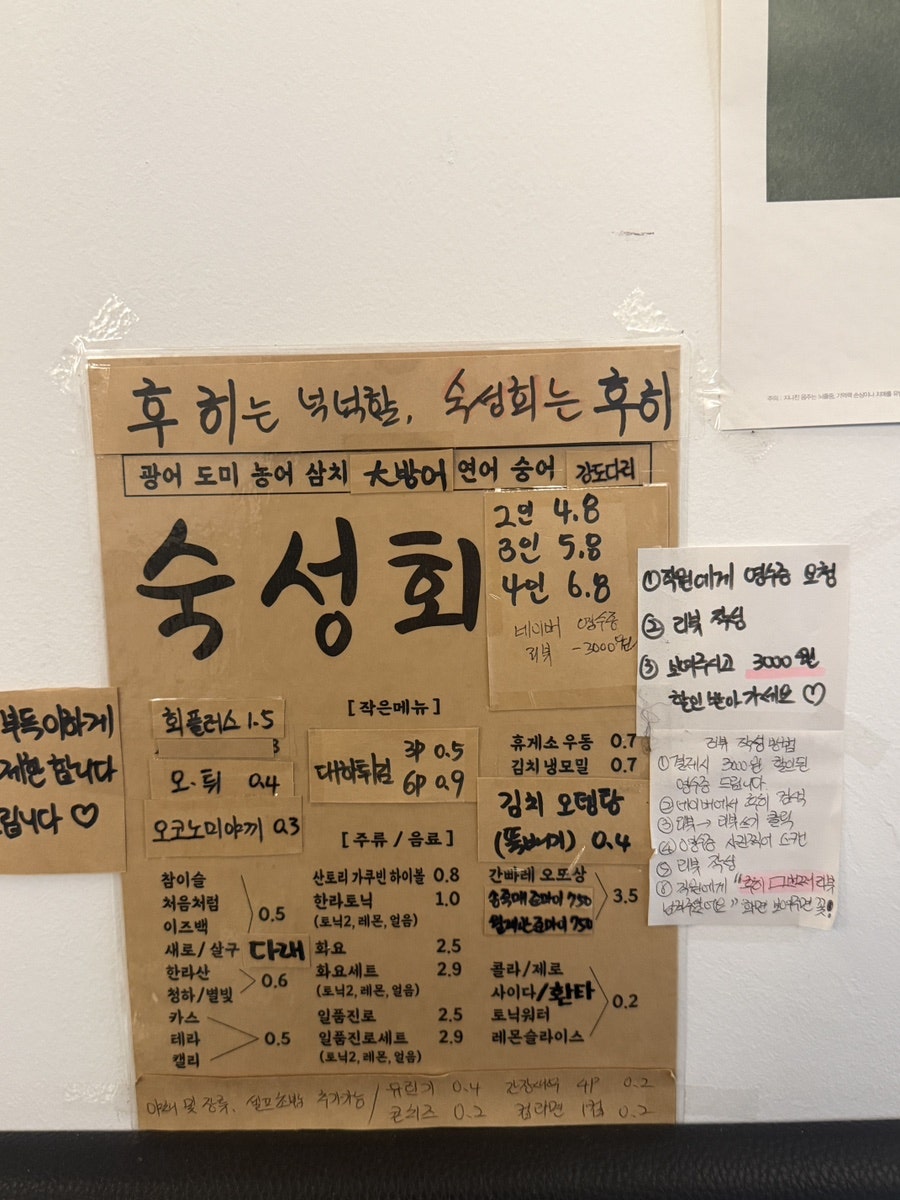 후히는 넉넉할, 숙성회는 후히
광어 도미 농어 삼치 大방어 연어 숭어 강도다리
숙성회
2인 4.8
3인 5.8
4인 6.8
네이버 영수증
리뷰 -3000원
① 직원에게 영수증 요청
② 리뷰 작성
③ 보여주시고 3000원
할인 받아가세요 ♡
부득이하게
제한합니다
드립니다 ♡
회플러스 1.5
오·튀 0.4
오코노미야끼 0.3
[ 작은메뉴 ]
대하튀김 3P 0.5
6P 0.9
휴게소 우동 0.7
김치 냉모밀 0.7
김치 오뎅탕
(뚝배기) 0.4
[ 주류 / 음료 ]
참이슬
처음처럼 0.5
이즈백
새로/살구 다래
한라산 0.6
청하/별빛
카스
테라 0.5
캘리
산토리 가쿠빈 하이볼 0.8
한라토닉 1.0
(토닉2, 레몬, 얼음)
화요 2.5
화요세트 2.9
(토닉2, 레몬, 얼음)
일품진로 2.5
일품진로세트 2.9
(토닉2, 레몬, 얼음)
간빠레 오또상
송죽매 준마이 750 3.5
월계관 준마이 750
콜라/제로
사이다/환타 0.2
토닉워터
레몬슬라이스
리뷰 작성 방법
① 결제시 3000원 할인된
영수증 드립니다
② 네이버에서 후히 검색
③ 리뷰 → 리뷰쓰기 클릭
④ 영수증 사진찍어 스캔
⑤ 리뷰 작성
⑥ 직원에게 "
" 화면 보여주면 끝!
야채 및 장류, 셀프초밥 추가가능 / 유린기 0.4 간장새우 4P 0.2
콘치즈 0.2 컵라면 1컵 0.2